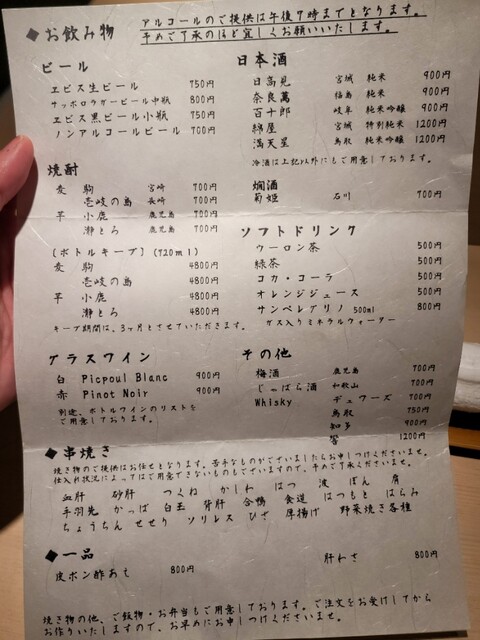 ◆お飲み物
アルコールのご提供は午後7時までとなります。
予めご了承のほど宜しくお願いいたします。
ビール
ヱビス生ビール 750円
サッポロラガービール中瓶 800円
ヱビス黒ビール小瓶 750円
ノンアルコールビール 700円
日本酒
日高見 宮城 純米 900円
奈良萬 福島 純米 900円
百十郎 岐阜 純米吟醸 900円
綿屋 宮城 特別純米 1200円
満天星 鳥取 純米吟醸 1200円
冷酒は上記以外にもご用意しております。
焼酎
麦 駒 宮崎 700円
壱岐の島 長崎 700円
芋 小鹿 鹿児島 700円
瀞とろ 鹿児島 700円
燗酒
菊姫 石川 700円
[ボトルキープ] (720ml)
麦 駒 4800円
壱岐の島 4800円
芋 小鹿 4800円
瀞とろ 4800円
キープ期間は、3ヶ月とさせていただきます。
ソフトドリンク
ウーロン茶 500円
緑茶 500円
コカ・コーラ 500円
オレンジジュース 500円
サンペレグリノ 500ml 800円
ガス入りミネラルウォーター
グラスワイン
白 Picpoul Blanc 900円
赤 Pinot Noir 900円
別途、ボトルワインのリストを
ご用意しております。
その他
梅酒 鹿児島 700円
じゃばら酒 和歌山 700円
Whisky デュワーズ 700円
鳥取 750円
知多 900円
響 1200円
◆串焼き
焼き物のご提供はお任せとなります。苦手なものがございましたらお申しつけくださいませ。
仕入れ状況によってはご用意できないものもございますので、予めご了承くださいませ。
血肝 砂肝 つくね かしわ はつ 波 ぼん 肩
手羽先 かっぱ 白玉 背肝 合鴨 食道 はつもと はらみ
ちょうちん せせり ソリレス ひざ 厚揚げ 野菜焼き各種
◆一品
皮ポン酢あえ 800円
肝わさ 800円
焼き物の他、ご飯物・お弁当もご用意しております。ご注文をお受けしてから
お作りいたしますので、お早めにお申しつけくださいませ。